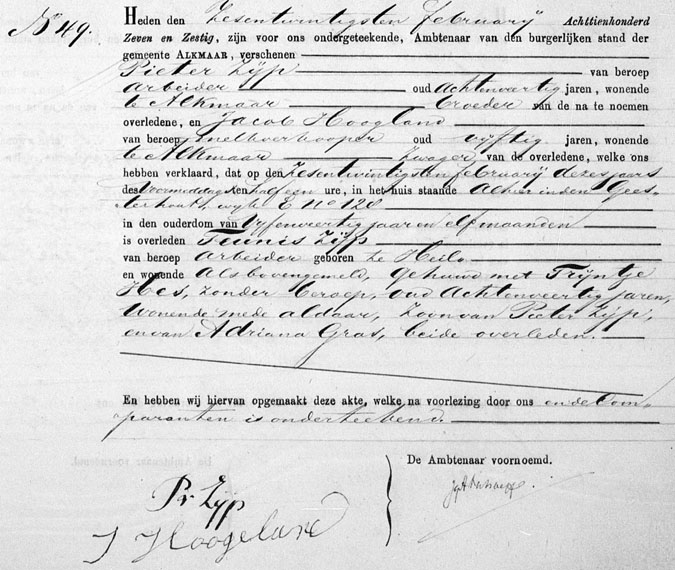 No 49.
Heden den Zesentwintigsten february Achttienhonderd
Zeven en Zestig, zijn voor ons ondergeteekende, Ambtenaar van den burgerlijken stand der
gemeente ALKMAAR, verschenen
Pieter Zijp van beroep
Arbeider oud Achtenveertig jaren, wonende
te Alkmaar broeder van de na te noemen
overledene, en Jacob Hoogland
van beroep oud vijftig jaren, wonende
te Alkmaar Zwager, van de overledene, welke ons
hebben verklaard, dat op den Zesentwintigsten february dezes jaars
des Voormiddags ten half een ure, in het huis staande Achter in den Gees-
terhout, wyk E No 128
in den ouderdom van Vijfenveertig jaar en elf maanden
is overleden Teunis Zijp
van beroep Arbeider geboren te Heilo
en wonende Als bovengemeld, gehuwd met Trijntje
Hes, zonder beroep, oud Achtenveertig jaren,
wonende mede aldaar, Zoon van Pieter Zijp,
en van Adriana Gras, beide overleden.
En hebben wij hiervan opgemaakt deze akte, welke na voorlezing door ons en de Com-
paranten is onderteekend.
De Ambtenaar voornoemd.
Pr Zijp
J Hoogeland